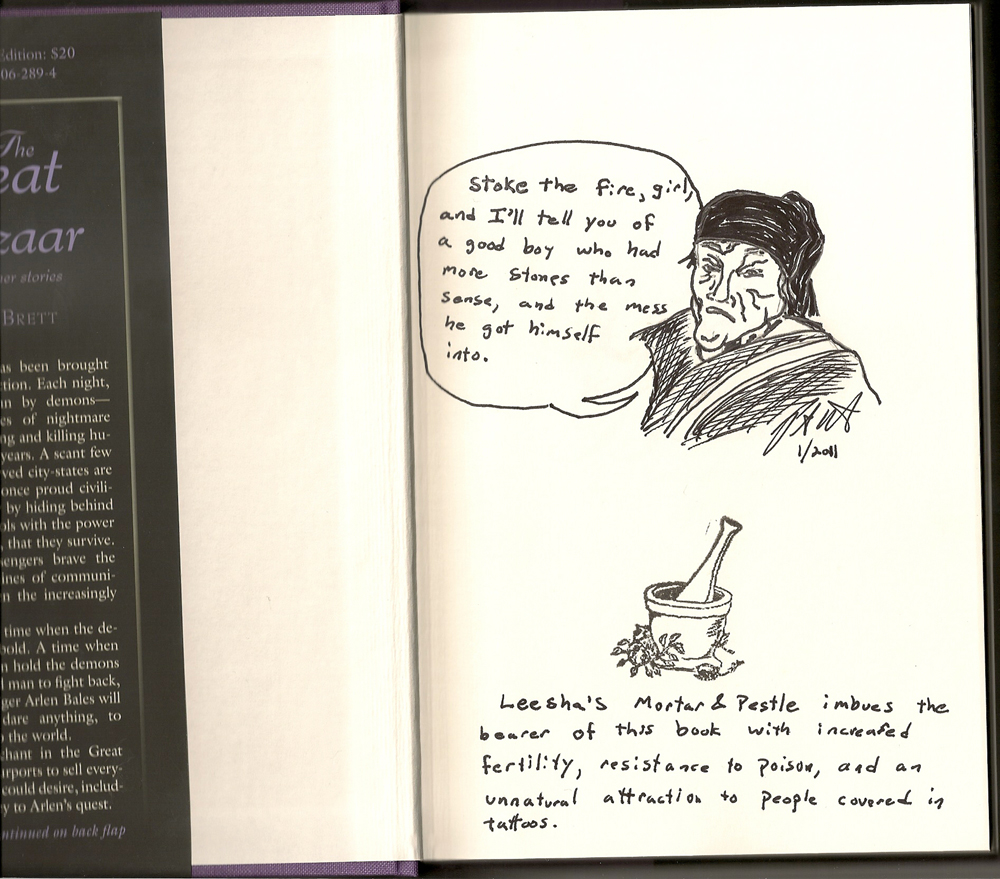 Edition: $20
06-289-4
The
eat
zaar
er stories
BRETT
as been brought
ction. Each night,
n by demons—
es of nightmare
ng and killing hu-
years. A scant few
ved city-states are
once proud civili-
by hiding behind
ols with the power
, that they survive.
sengers brave the
ines of communi-
n the increasingly
time when the de-
bold. A time when
n hold the demons
l man to fight back,
ger Arlen Bales will
dare anything, to
the world.
chant in the Great
urports to sell every-
could desire, includ-
y to Arlen's quest.
ntinued on back flap
Stoke the fire, girl,
and I'll tell you of
a good boy who had
more stones than
sense, and the mess
he got himself
into.
1/2011
Leesha's Mortar & Pestle imbues the
bearer of this book with increased
fertility, resistance to poison, and an
unnatural attraction to people covered in
tattoos.